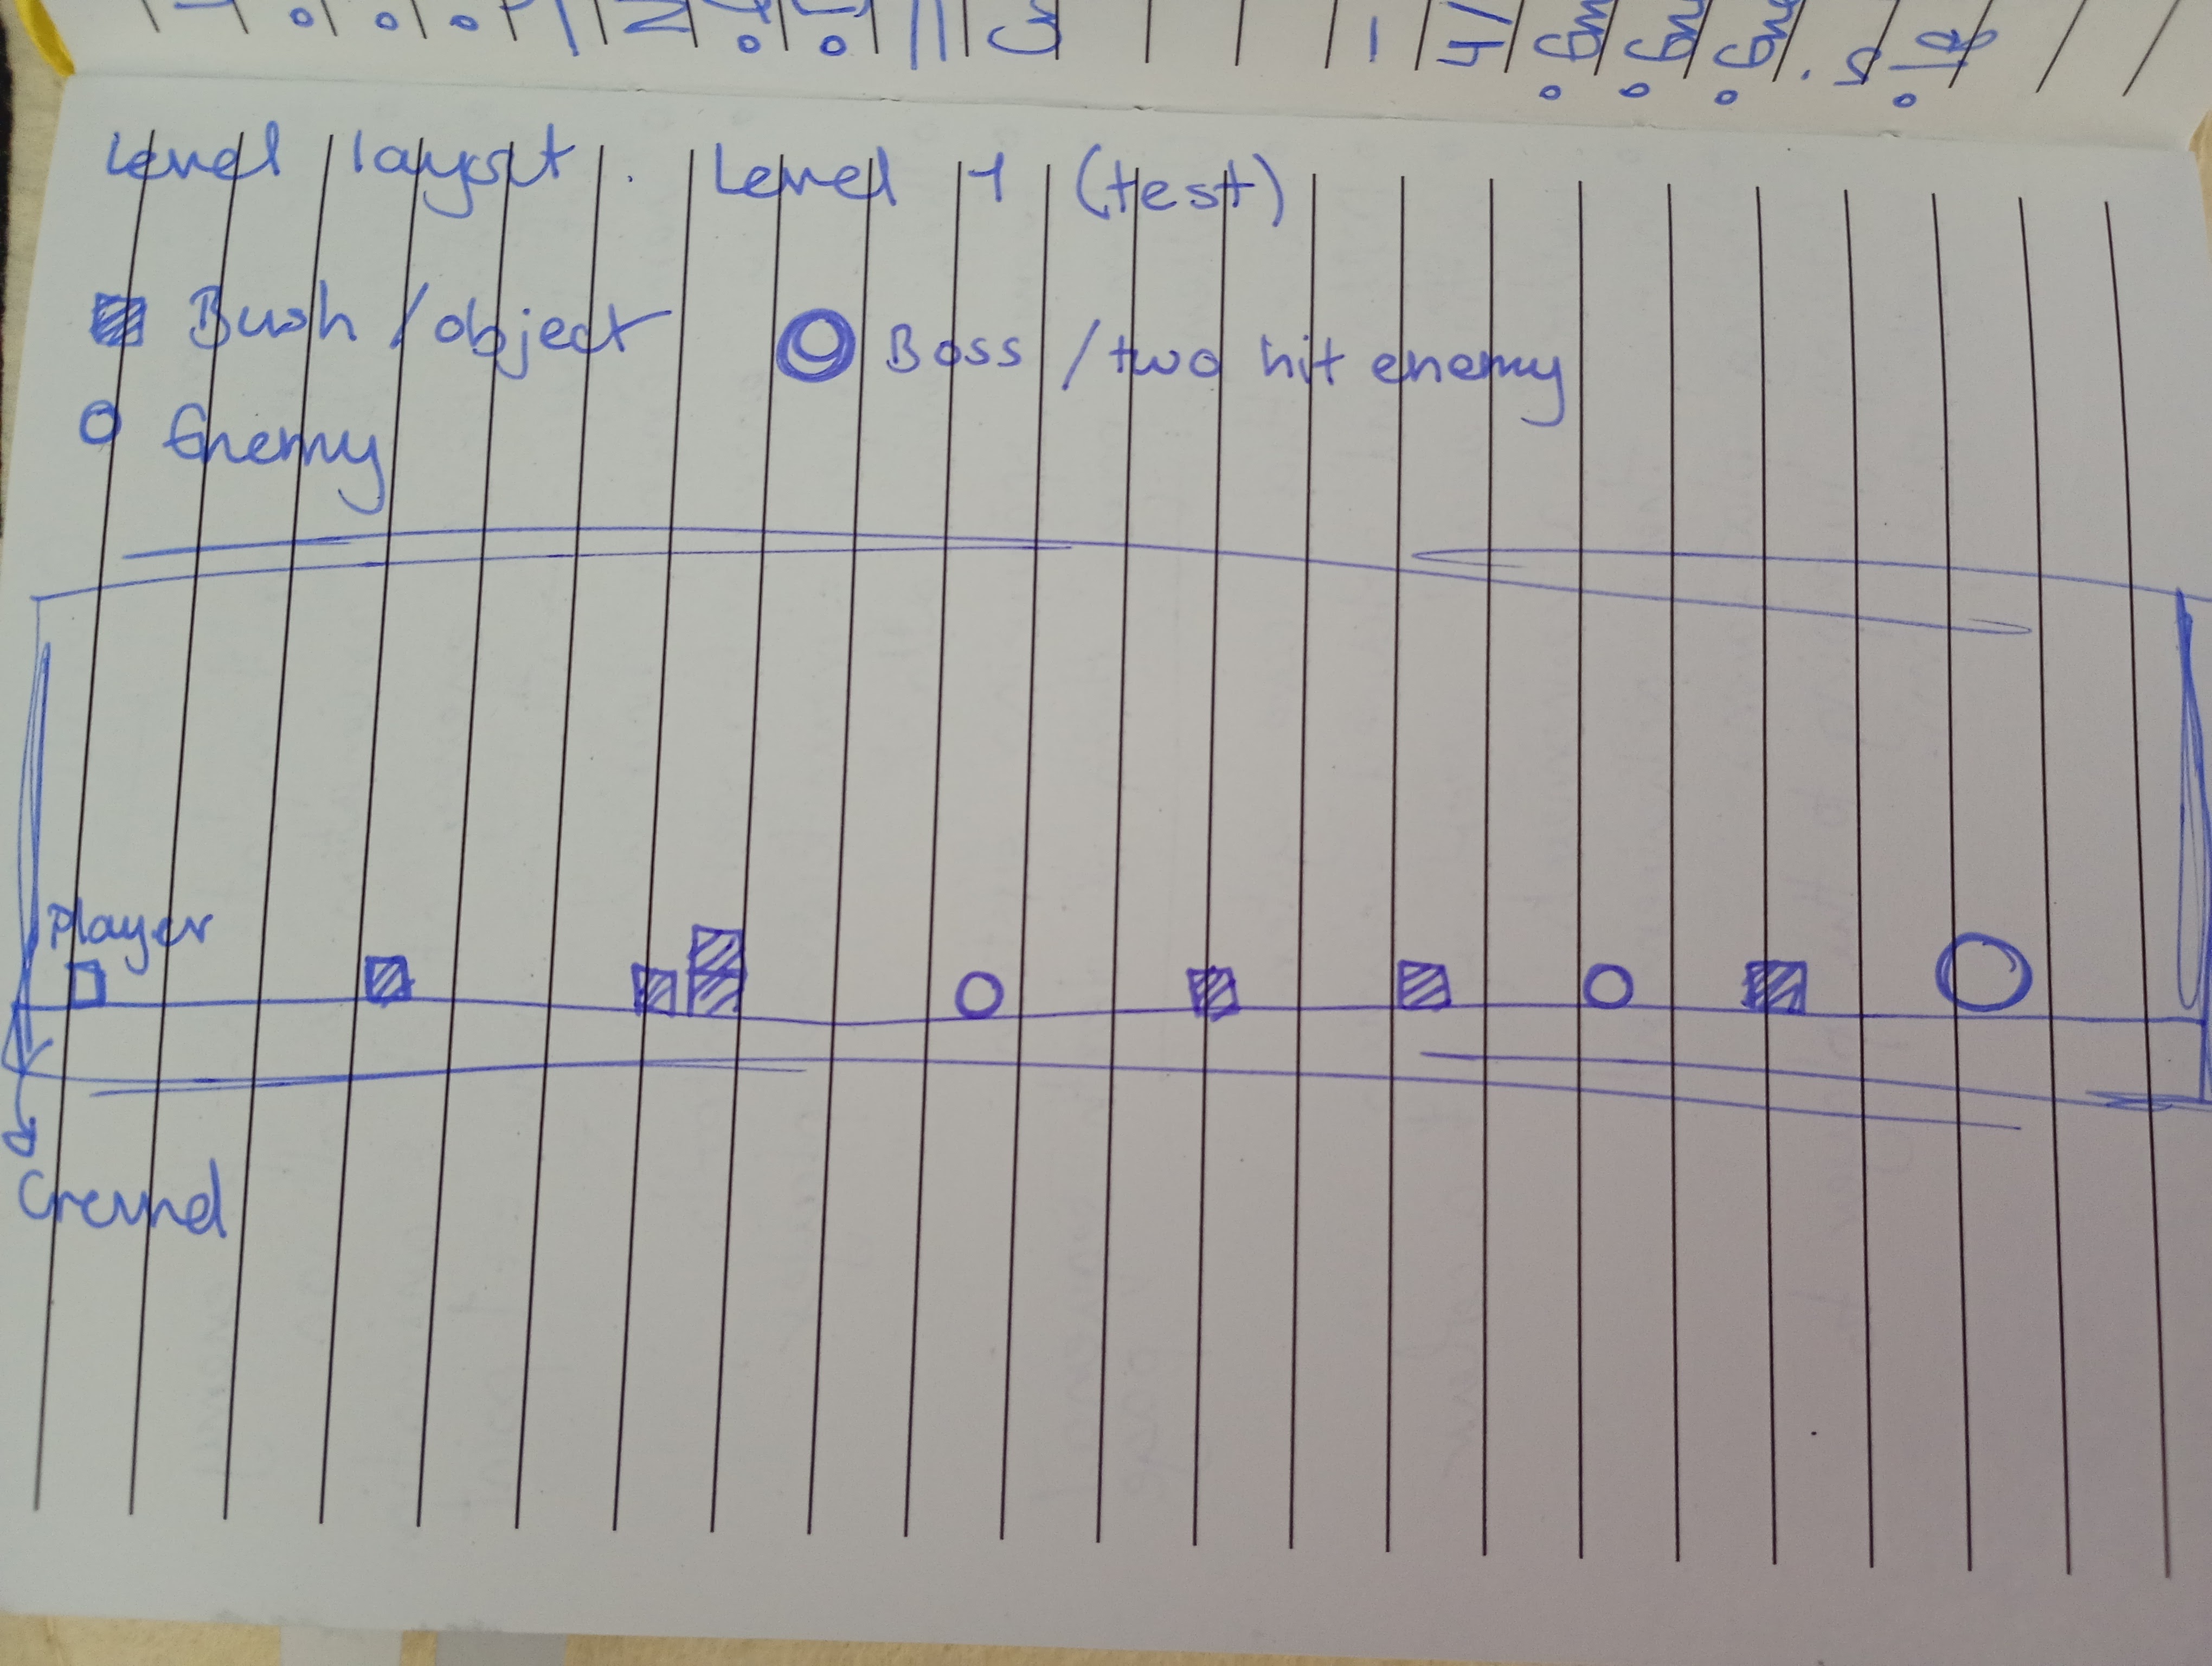 Level layout. Level 1 (test)
Bush / object
Boss / two hit enemy
Enemy
Player
Ground